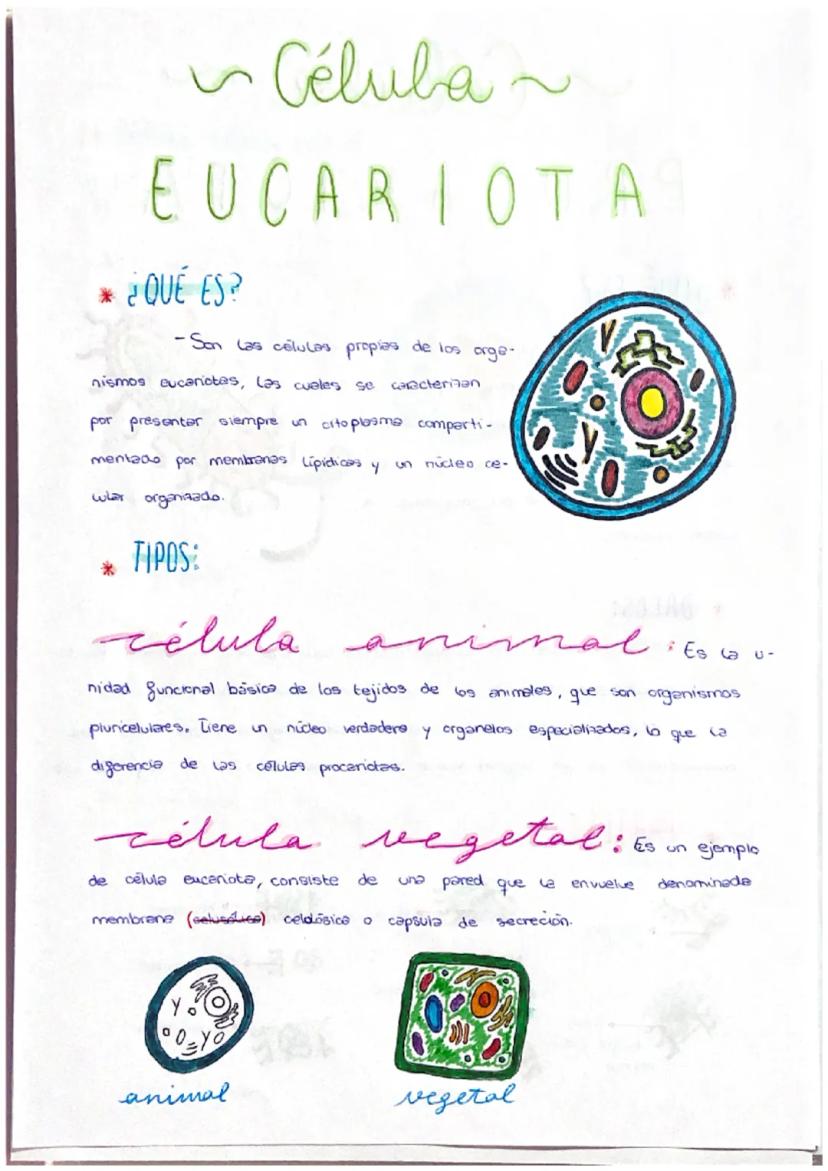 ~ Célula ~
EUCARIOTA
* ¿QUÉ ES?
- Son las células propias de los orga-
nismos eucariotas, las cuales se caracterizan
por presentar siempre un citoplasma comparti-
mentado por membranas lipídicas y un núcleo ce-
lular organizado.
* TIPOS:
célula animal: Es la u-
nidad funcional básica de los tejidos de los animales, que son organismos
pluricelulares. Tiene un núcleo verdadero y organelos especializados, lo que la
diferencia de las células procariotas.
célula vegetal: Es un ejemplo
de célula eucariota, consiste de una pared que la envuelve denominada
membrana (celusólica) celdósica o capsula de secreción.
animal vegetal